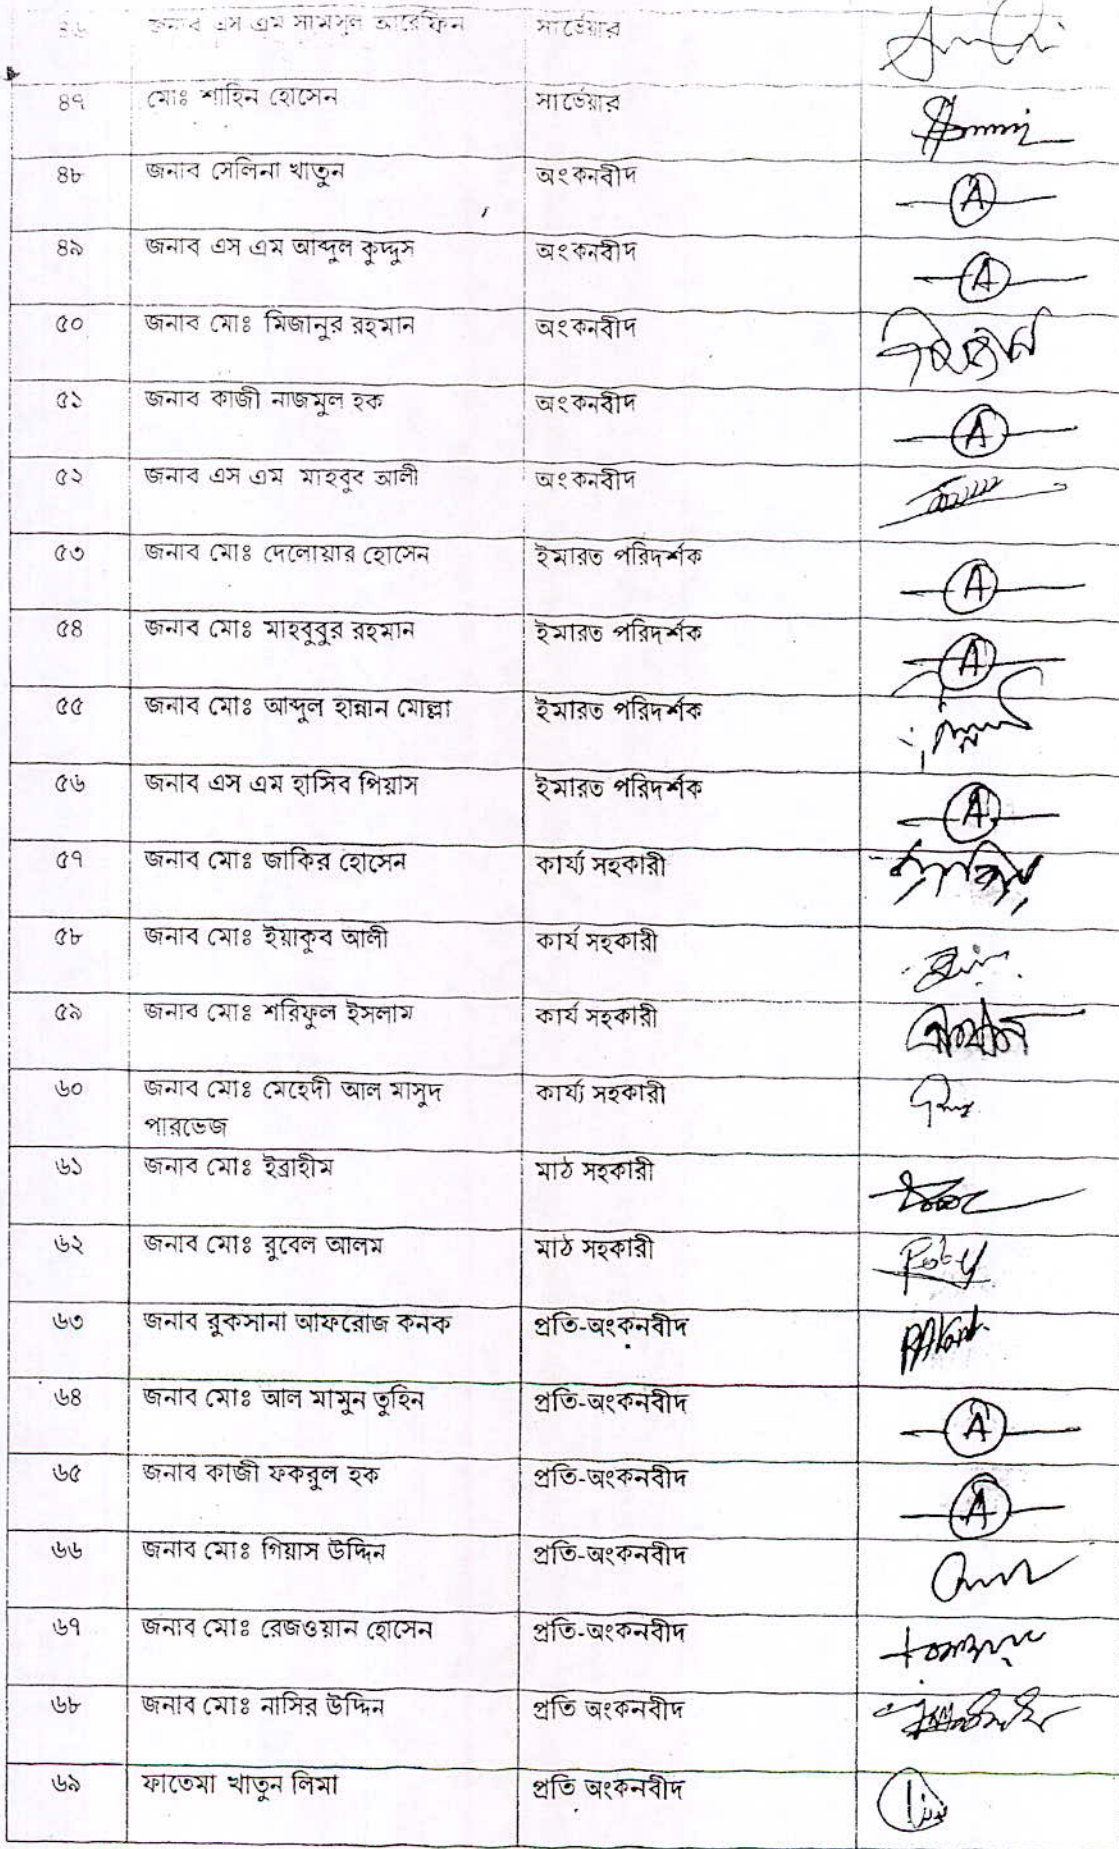 ৪৬ জনাব এস এম সামসুল আরেফিন সার্ভেয়ার
৪৭ মোঃ শাহিন হোসেন সার্ভেয়ার
৪৮ জনাব সেলিনা খাতুন অংকনবীদ A
৪৯ জনাব এস এম আব্দুল কুদ্দুস অংকনবীদ A
৫০ জনাব মোঃ মিজানুর রহমান অংকনবীদ
৫১ জনাব কাজী নাজমুল হক অংকনবীদ A
৫২ জনাব এস এম মাহবুব আলী অংকনবীদ
৫৩ জনাব মোঃ দেলোয়ার হোসেন ইমারত পরিদর্শক A
৫৪ জনাব মোঃ মাহবুবুর রহমান ইমারত পরিদর্শক A
৫৫ জনাব মোঃ আব্দুল হান্নান মোল্লা ইমারত পরিদর্শক
৫৬ জনাব এস এম হাসিব পিয়াস ইমারত পরিদর্শক A
৫৭ জনাব মোঃ জাকির হোসেন কার্য্য সহকারী
৫৮ জনাব মোঃ ইয়াকুব আলী কার্য সহকারী
৫৯ জনাব মোঃ শরিফুল ইসলাম কার্য সহকারী
৬০ জনাব মোঃ মেহেদী আল মাসুদ কার্য্য সহকারী
পারভেজ
৬১ জনাব মোঃ ইব্রাহীম মাঠ সহকারী
৬২ জনাব মোঃ রুবেল আলম মাঠ সহকারী
৬৩ জনাব রুকসানা আফরোজ কনক প্রতি-অংকনবীদ
৬৪ জনাব মোঃ আল মামুন তুহিন প্রতি-অংকনবীদ A
৬৫ জনাব কাজী ফকরুল হক প্রতি-অংকনবীদ A
৬৬ জনাব মোঃ গিয়াস উদ্দিন প্রতি-অংকনবীদ
৬৭ জনাব মোঃ রেজওয়ান হোসেন প্রতি-অংকনবীদ
৬৮ জনাব মোঃ নাসির উদ্দিন প্রতি অংকনবীদ
৬৯ ফাতেমা খাতুন লিমা প্রতি অংকনবীদ